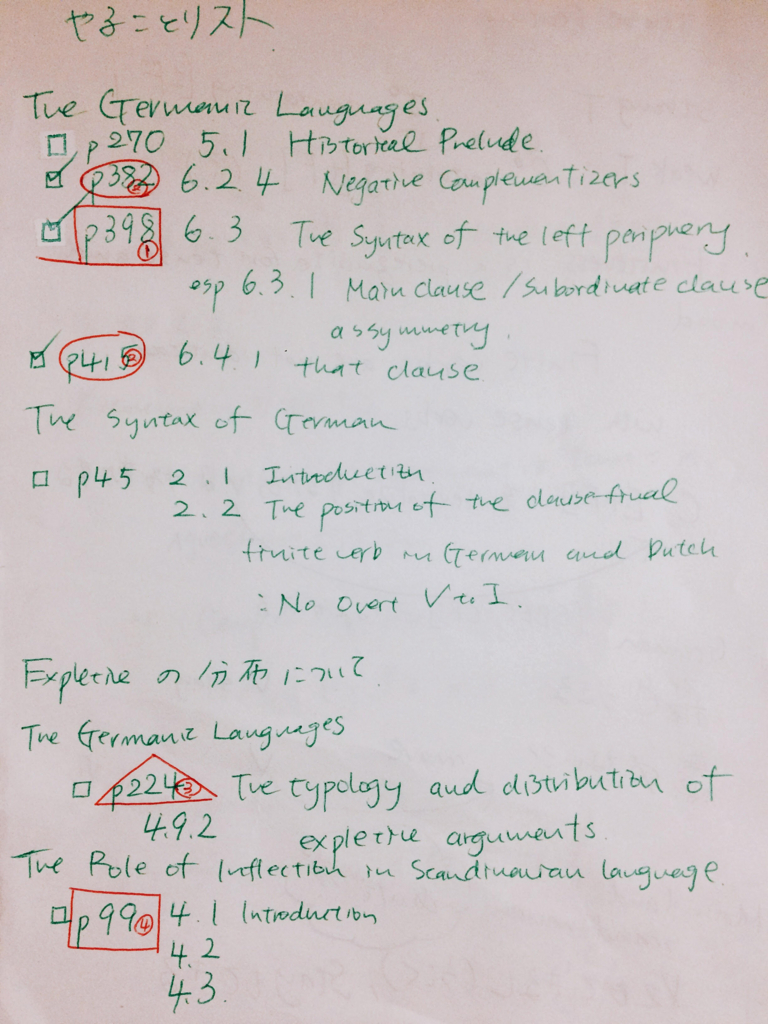 やることリスト
The Germanic Languages
p270 5.1 Historical Prelude.
p382 ② 6.2.4 Negative Complementizers
p398 ① 6.3 The Syntax of the left periphery.
esp 6.3.1 Main clause / Subordinate clause
assymmetry.
p415 ② 6.4.1 that clause
The Syntax of German
p45 2.1 Introduction.
2.2 The position of the clause-final
finite verb in German and Dutch
: No Overt V to I.
Expletive の分布について
The Germanic Languages
p224 ③ The typology and distribution of
4.9.2 expletive arguments.
The Role of Inflection in Scandinavian language.
p99 ④ 4.1 Introduction
4.2
4.3.